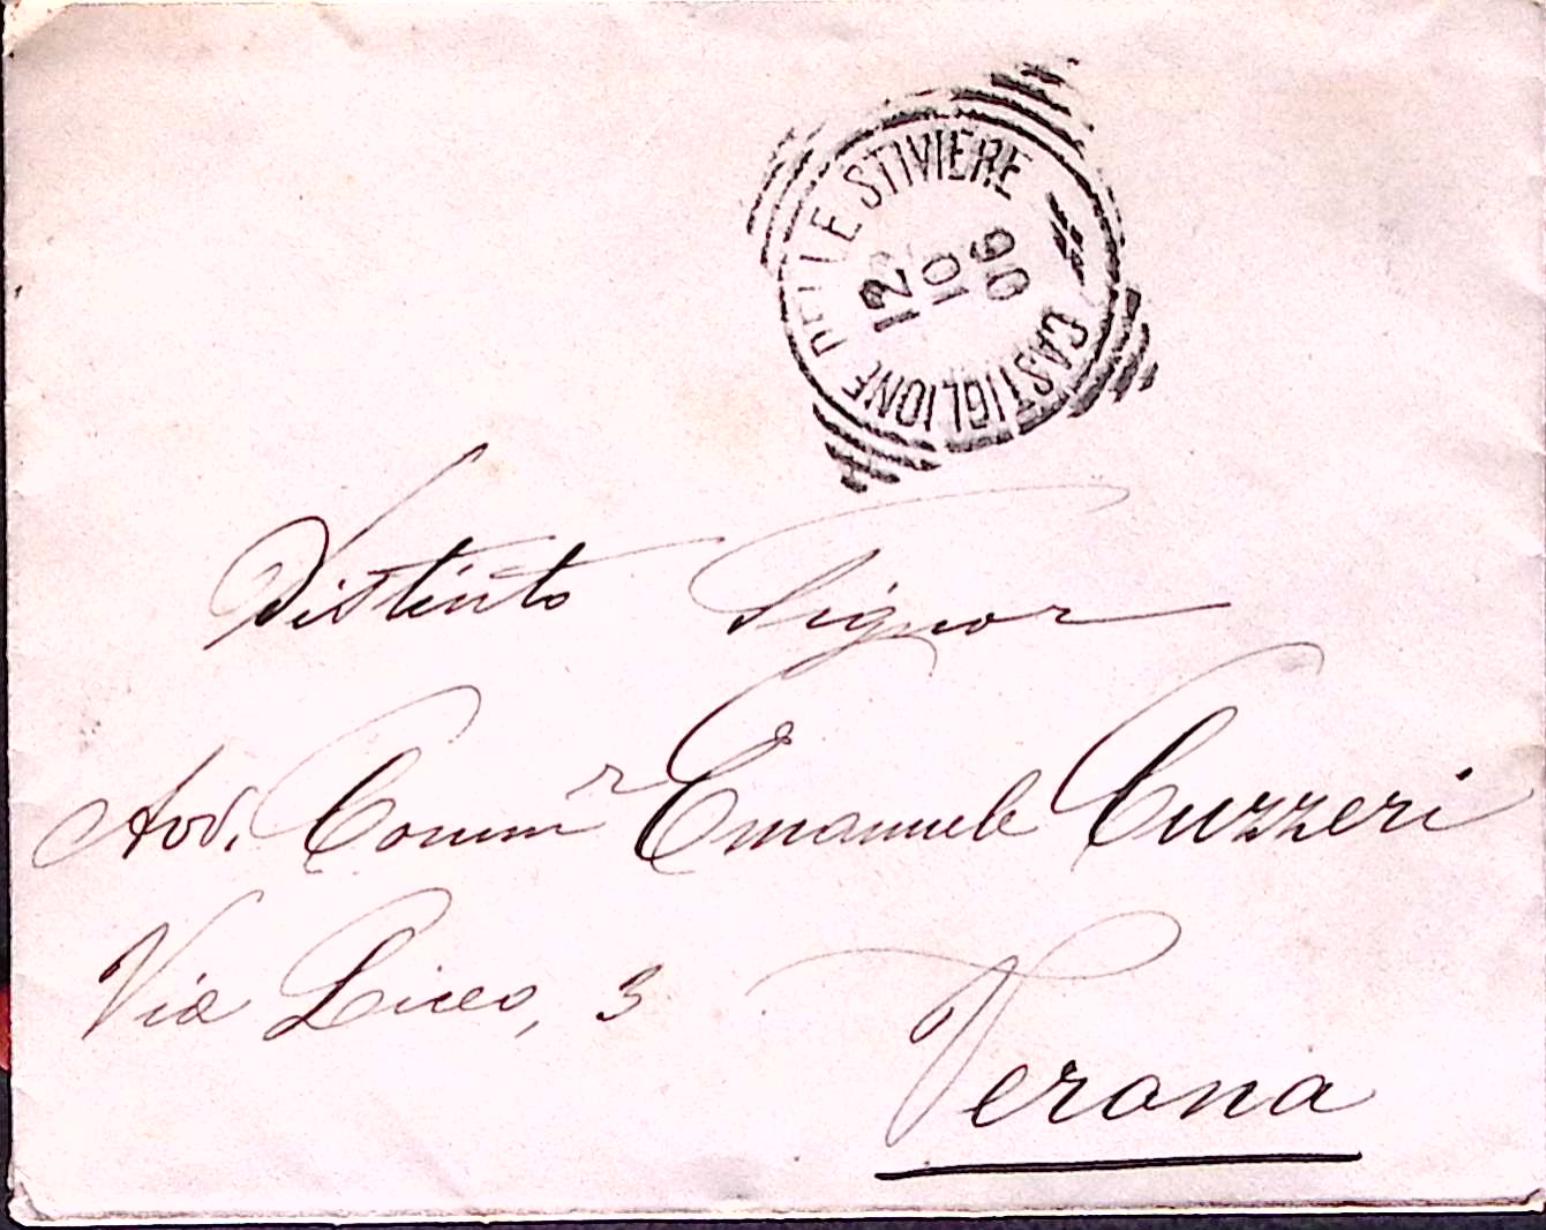 CASTIGLIONE DELLE STIVIERE
12
10
06
Distinto Signor
Avv. Comm.r Emanuele Cuzzeri
Via Liceo, 3
Verona